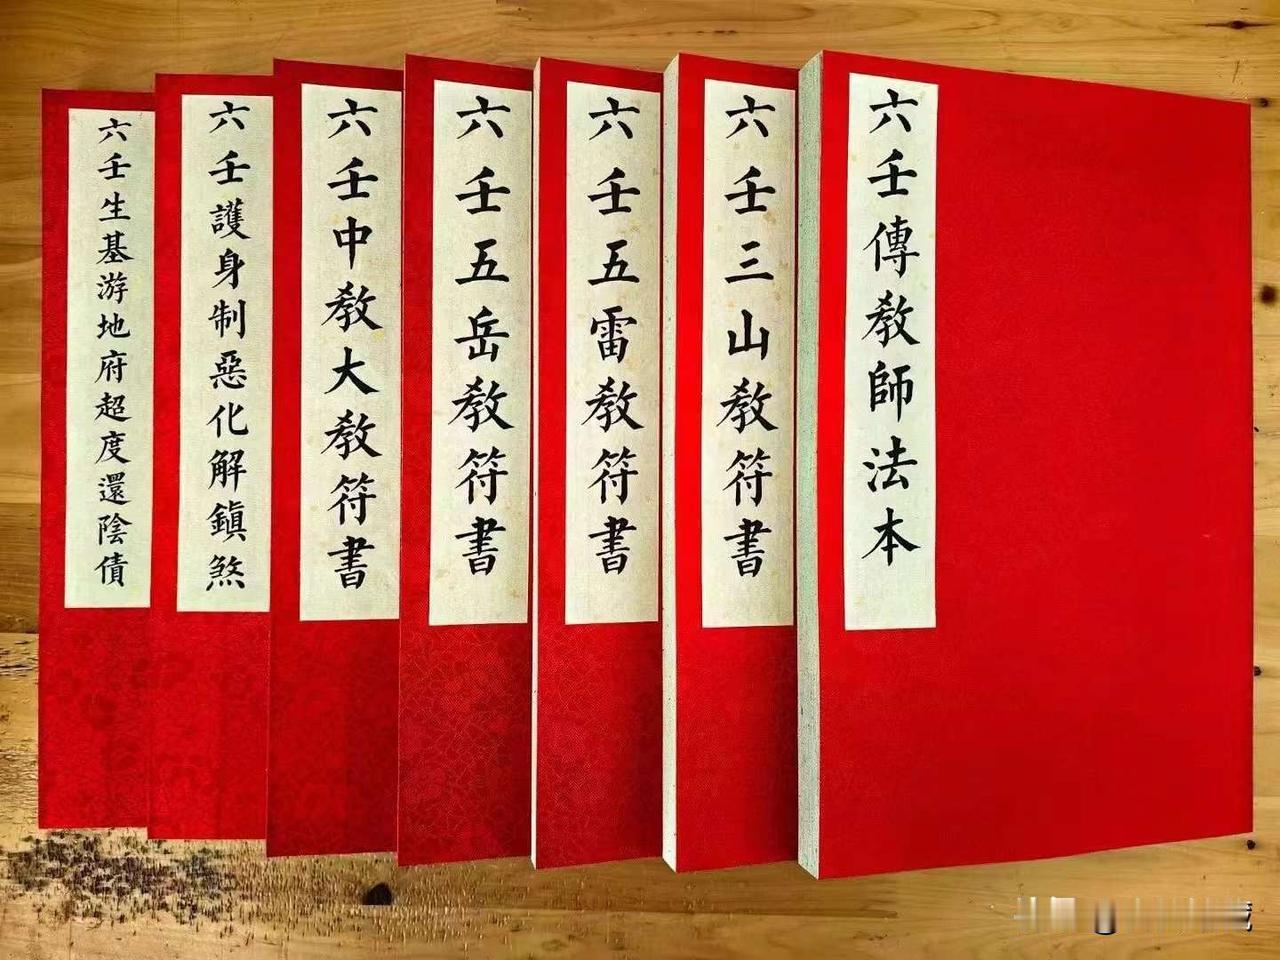 六壬傳教師法本
六壬三山教符書
六壬五雷教符書
六壬五岳教符書
六壬中教大教符書
六壬護身制惡化解鎮煞
六壬生基游地府超度還陰債